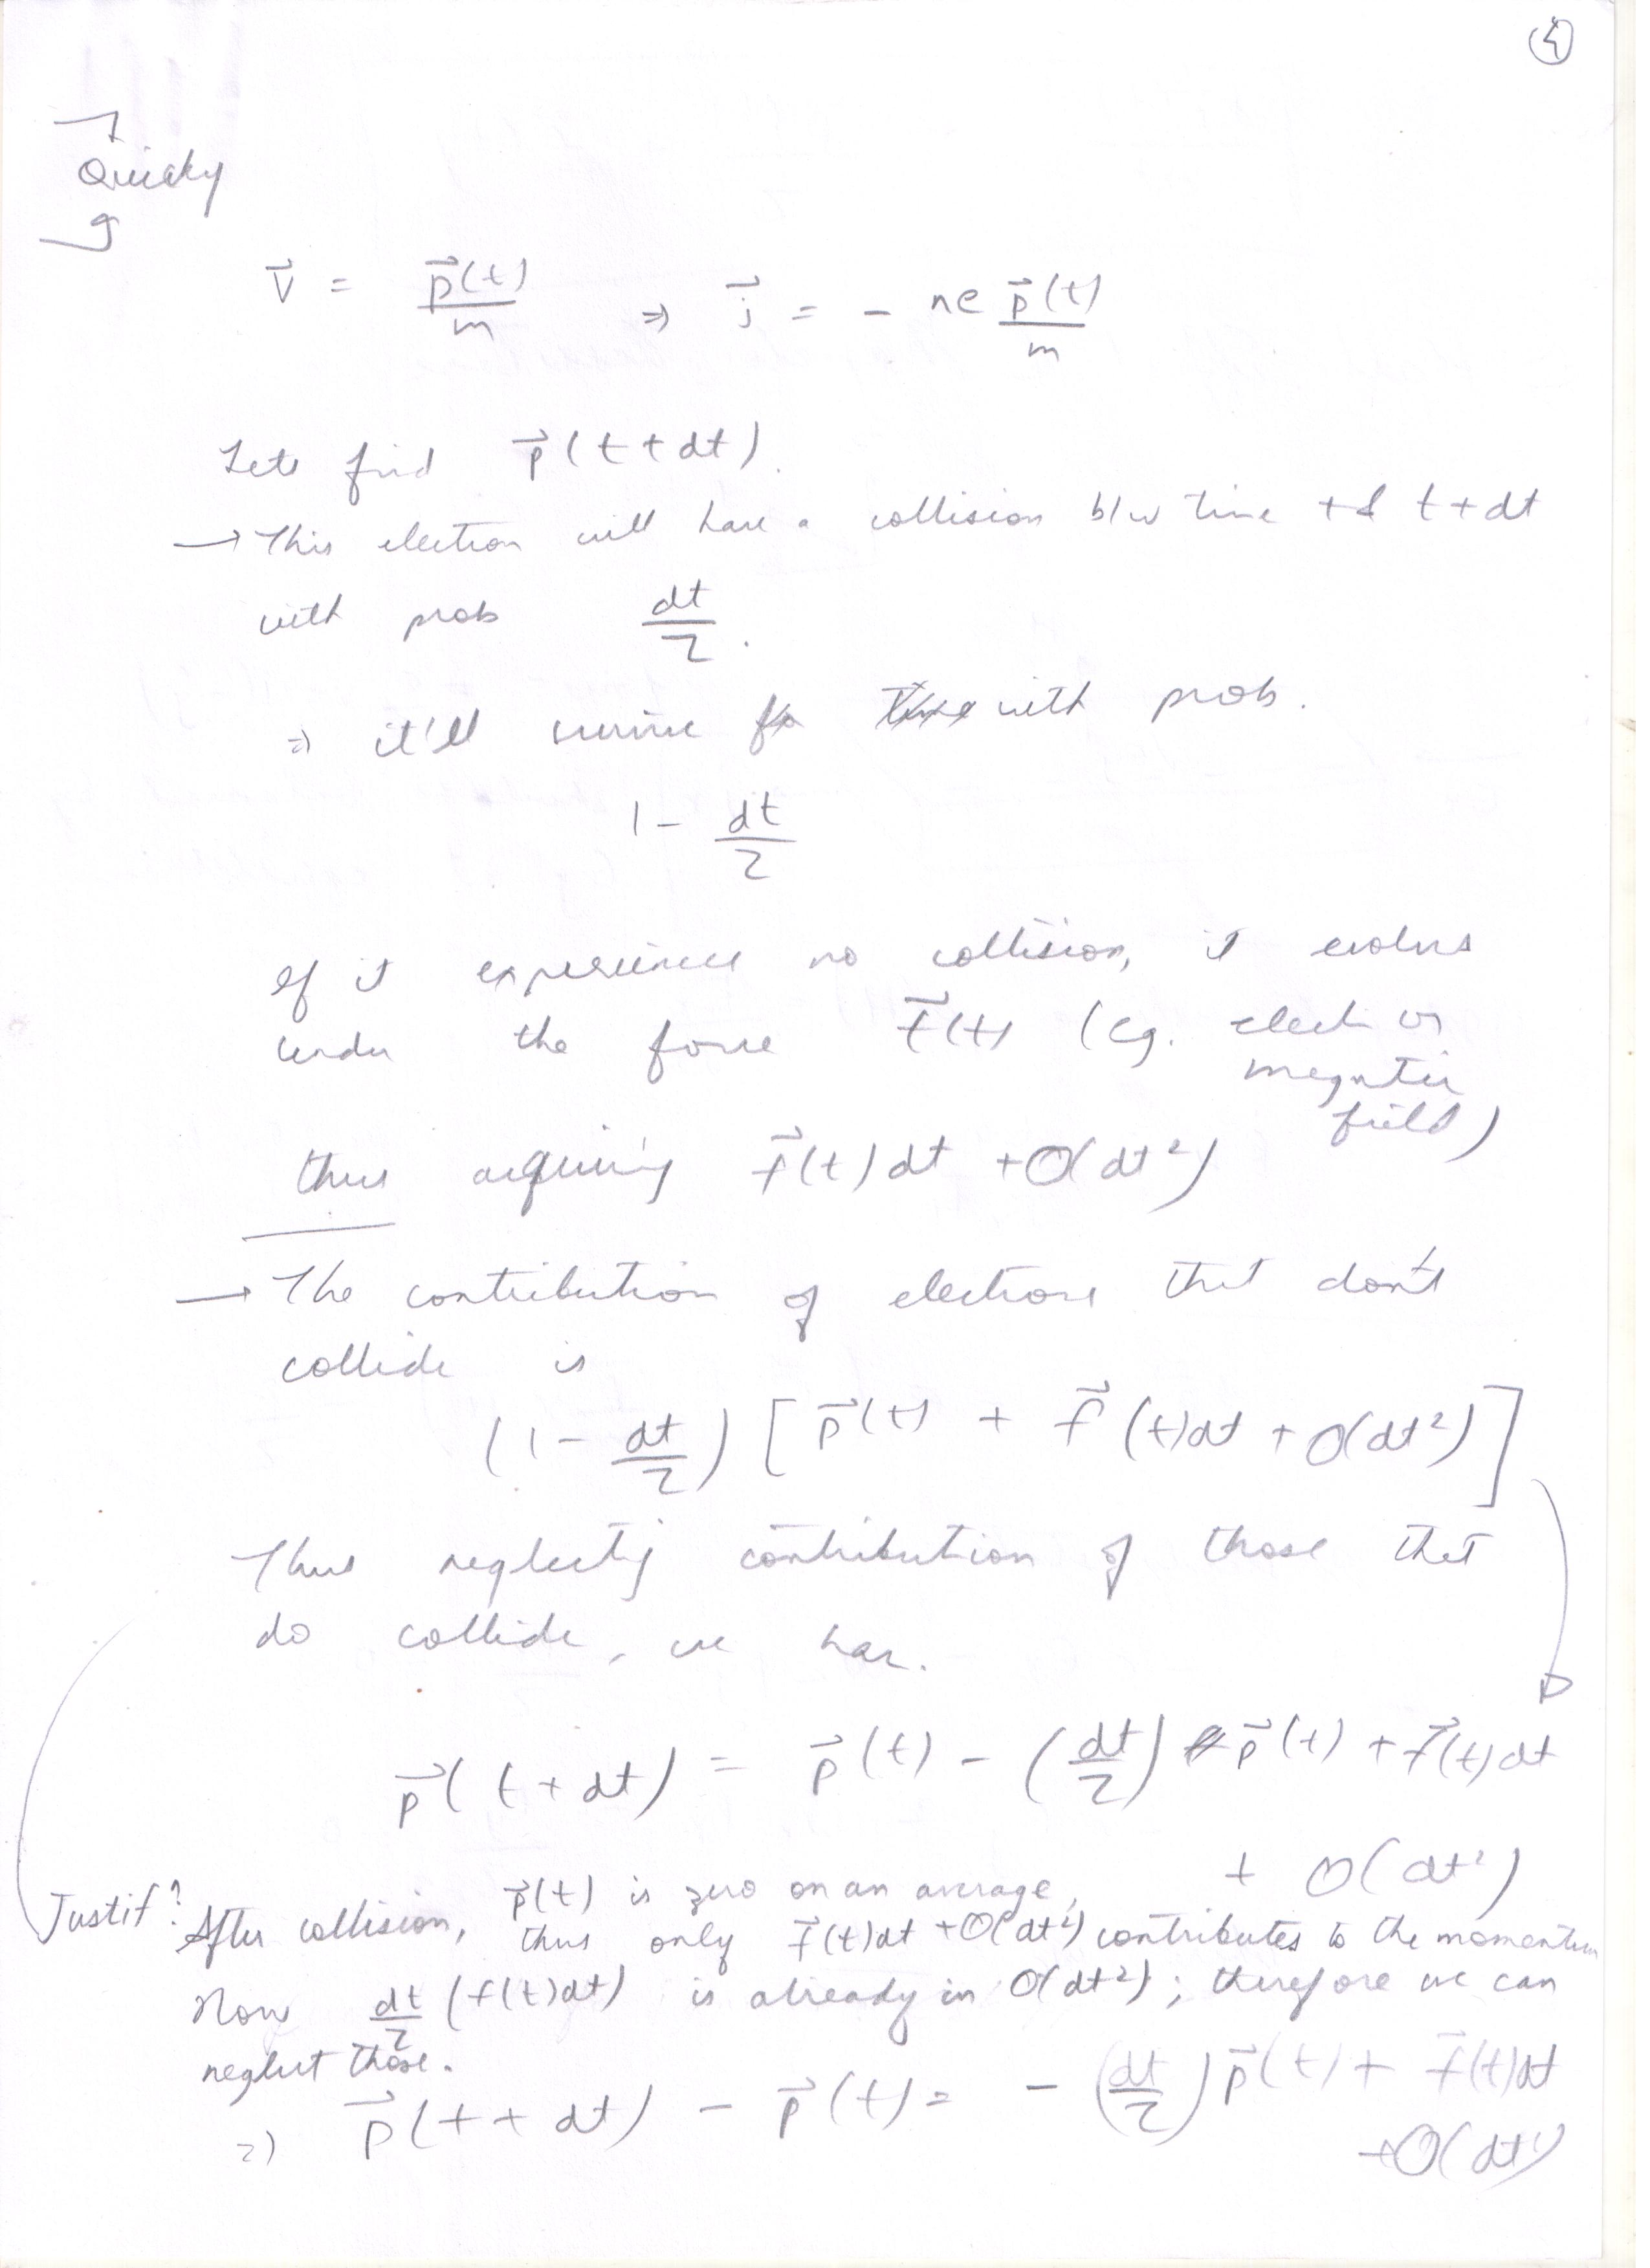 4
Quicky
v⃗ = p⃗(t)/m ⇒ j⃗ = - ne p⃗(t)/m
Lets find p⃗(t+dt).
→ This electron will have a collision b/w time t & t+dt
with prob dt/τ.
⇒ it'll survive with prob.
1 - dt/τ
If it experiences no collision, it evolves
under the force f⃗(t) (eg. elect or
magnetic
field)
thus acquiring f⃗(t)dt + O(dt²)
→ The contribution of electrons that don't
collide is
(1 - dt/τ) [p⃗(t) + f⃗(t)dt + O(dt²)]
Thus neglectig contribution of those that
do collide, we have.
p⃗(t+dt) = p⃗(t) - (dt/τ) p⃗(t) + f⃗(t)dt
+ O(dt²)
Justif?
After collision, p⃗(t) is zero on an average,
thus only f⃗(t)dt + O(dt²) contributes to the momentum
Now dt/τ (f(t)dt) is already in O(dt²); therefore we can
neglect those.
⇒ p⃗(t+dt) - p⃗(t) = - (dt/τ) p⃗(t) + f⃗(t)dt
+ O(dt²)